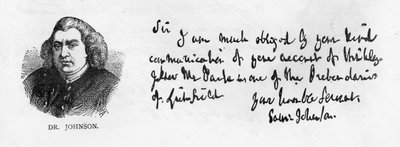 DR. JOHNSON.
Sir
I am much obliged by your kind
communication of your account of
of the Prebendaries
of Lichfield
your humble Servant
Sam: Johnson.